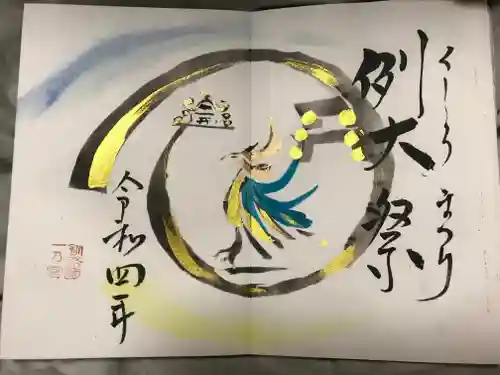 くしろ まつり
例大祭
令和四年